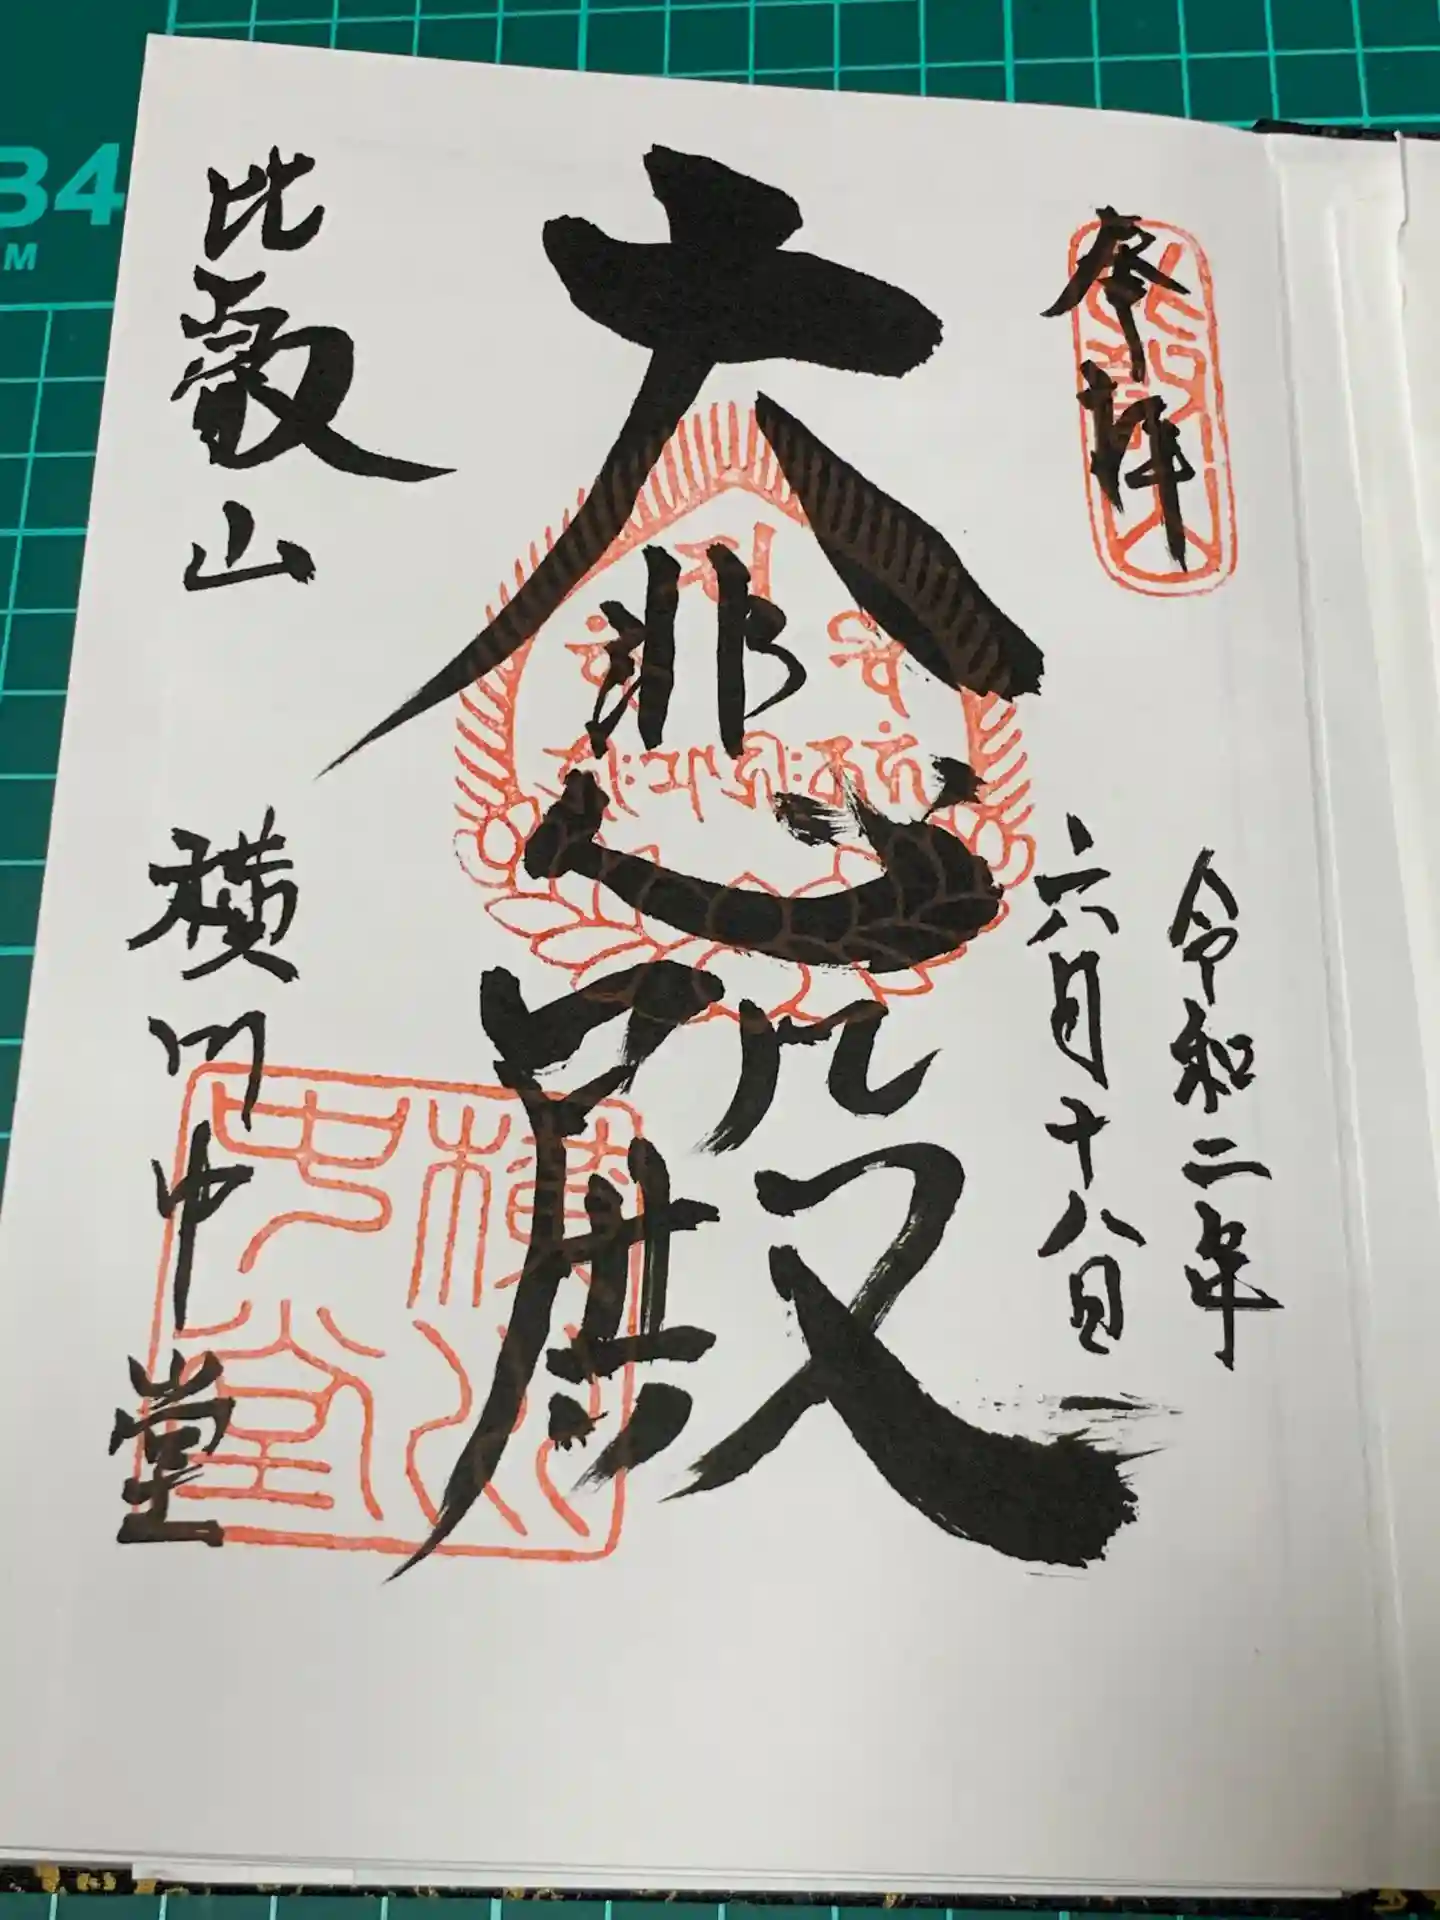 奉拝
令和二年
六月十八日
大悲殿
比叡山
横川中堂
横川中堂
B4